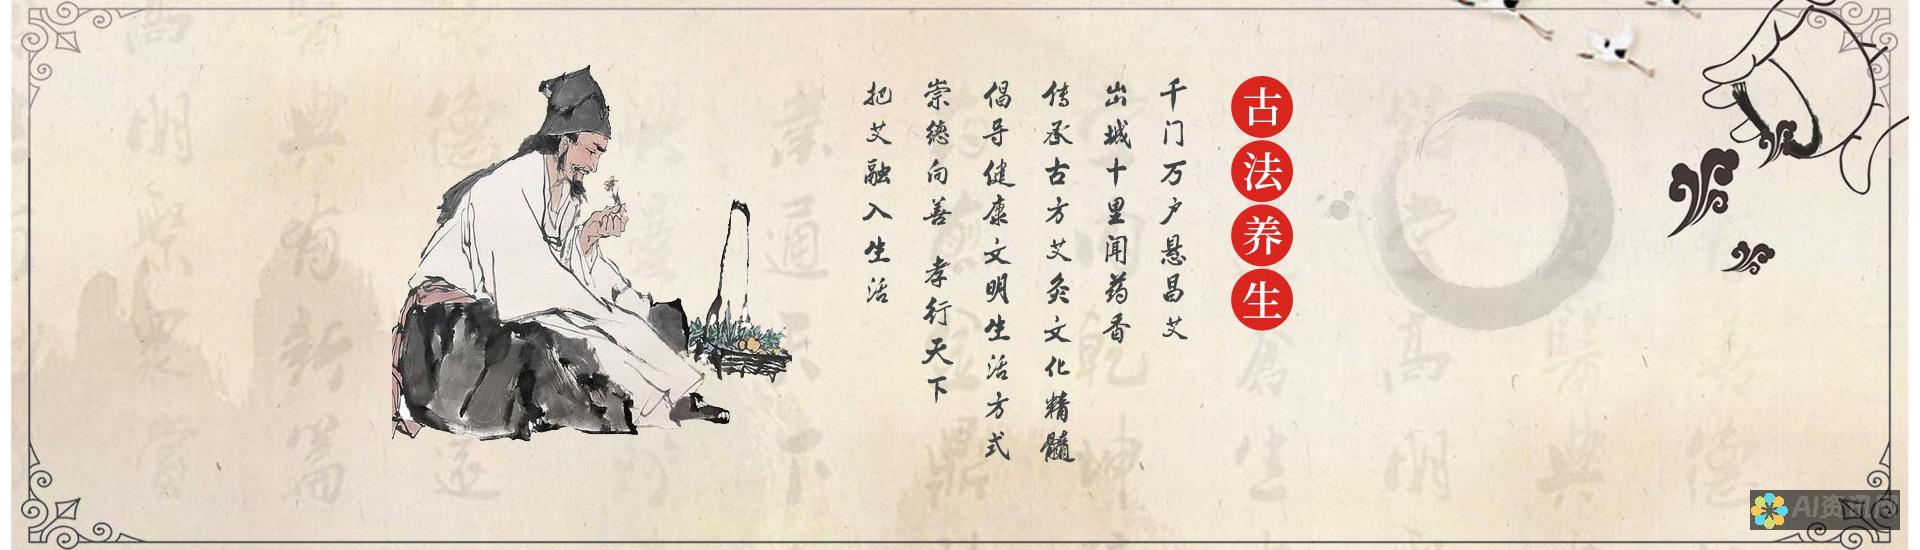 古法养生
千门万户悬昌艾
出城十里闻药香
传承古方艾灸文化精髓
倡导健康文明生活方式
崇德向善 孝行天下
把艾融入生活
AI资讯网